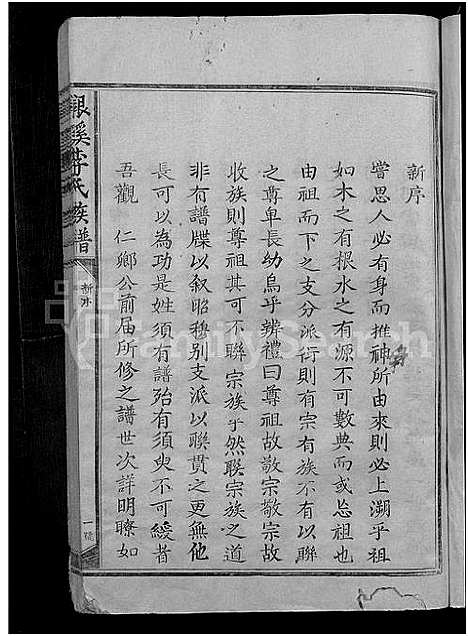 新序
嘗思人必有身而推神所由來則必上溯乎祖
如木之有根水之有源不可數典而或忘祖也
由祖而下之支分派衍則有宗有族不有以聯
之尊卑長幼烏乎辨禮曰尊祖故敬宗敬宗故
收族則尊祖其可不聯宗族乎然聯宗族之道
非有譜牒以叙昭穆别支派以聯貫之更無他
長可以為功是姓須有譜殆有須臾不可緩者
吾觀 仁鄉公前届所修之譜世次詳明瞭如
銀溪李氏族譜
新序
一
FamilySearch